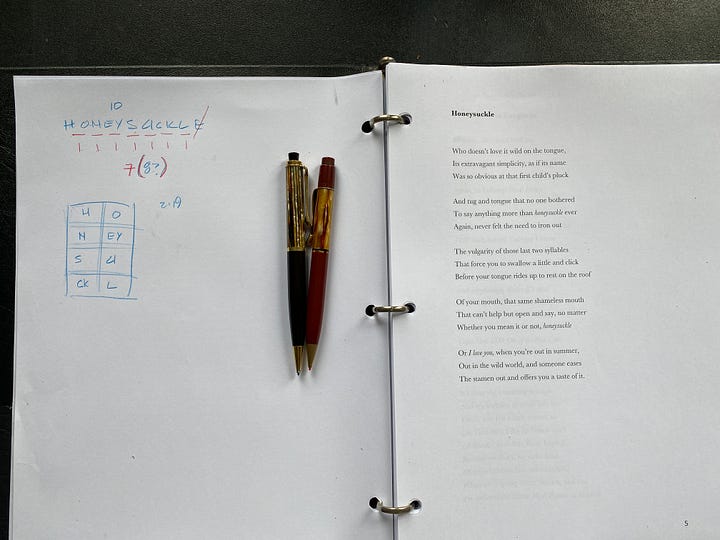 10
HONEYSUCKLE
1 1 1 1 1 1 1
7(8?)
H O
N EY
S U
CK L
Honeysuckle
Who doesn't love it wild on the tongue,
Its extravagant simplicity, as if its name
Was so obvious at that first child's pluck
And tug and tongue that no one bothered
To say anything more than honeysuckle ever
Again, never felt the need to iron out
The vulgarity of those last two syllables
That force you to swallow a little and click
Before your tongue rides up to rest on the roof
Of your mouth, that same shameless mouth
That can't help but open and say, no matter
Whether you mean it or not, honeysuckle
Or I love you, when you're out in summer,
Out in the wild world, and someone eases
The stamen out and offers you a taste of it.
5